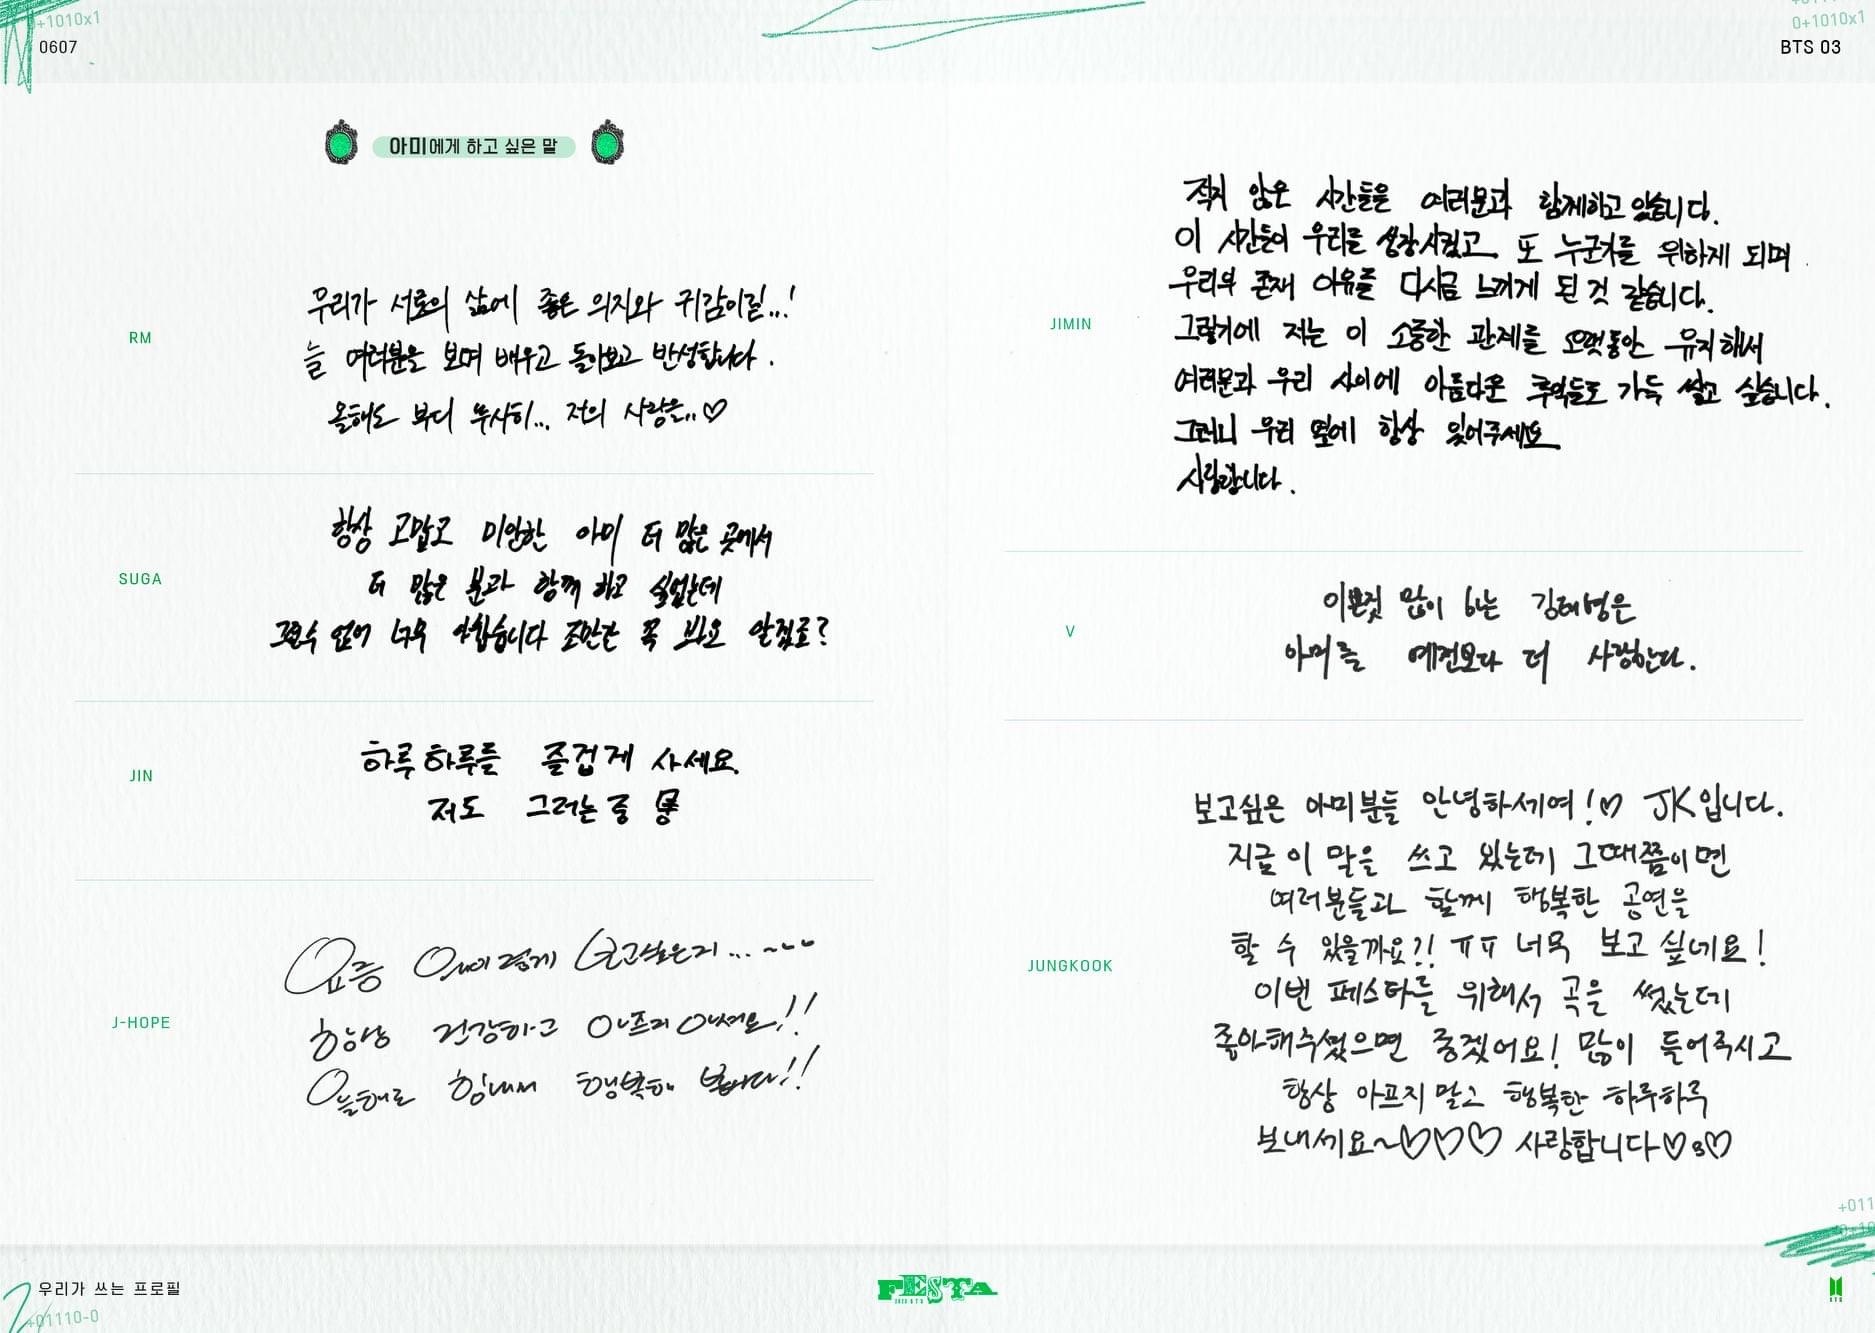 0+1010x1
0+1010x1
0607
BTS 03
아미에게 하고 싶은 말
RM
우리가 서로의 삶에 좋은 의지와 귀감이길...!
늘 여러분을 보며 배우고 돌아보고 반성합니다.
올해도 부디 무사히... 저의 사랑은..♡
SUGA
항상 고맙고 미안한 아미 더 많은 곳에서
더 많은 분과 함께 하고 싶었는데
그럴수 없어 너무 아쉽습니다 조만간 꼭 봐요 알겠죠?
JIN
하루하루를 즐겁게 사세요.
저도 그러는 중
J-HOPE
요즘 왜이렇게 보고싶은지...~
항상 건강하고 아프지 마세요!!
올해도 힘내서 행복해 봅시다!!
JIMIN
적지 않은 시간들을 여러분과 함께하고 있습니다.
이 시간들이 우리를 성장시켰고 또 누군가를 위하게 되며
우리의 존재 이유를 다시금 느끼게 된 것 같습니다.
그렇기에 저는 이 소중한 관계를 오랫동안 유지해서
여러분과 우리 사이에 아름다운 추억들로 가득 쌓고 싶습니다.
그러니 우리 옆에 항상 있어주세요
사랑합니다.
V
이쁜짓 많이 하는 김태형은
아미를 예전보다 더 사랑한다.
JUNGKOOK
보고싶은 아미분들 안녕하세여!♡ JK입니다.
지금 이 말을 쓰고 있는데 그때쯤이면
여러분들과 함께 행복한 공연을
할 수 있을까요?! ㅠㅠ 너무 보고 싶네요!
이번 페스타를 위해서 곡을 썼는데
좋아해주셨으면 좋겠어요! 많이 들어주시고
항상 아프지 말고 행복한 하루하루
보내세요~♡♡♡ 사랑합니다♡3♡
+011
우리가 쓰는 프로필
+01110-0
FESTA
2020 BTS
BTS